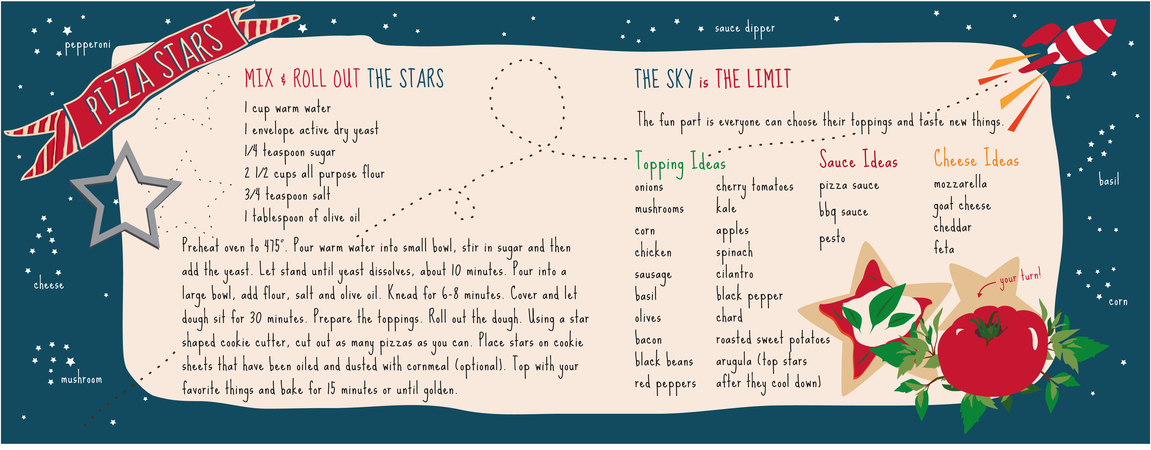 PIZZA STARS
pepperoni
sauce dipper
basil
cheese
corn
mushroom
MIX & ROLL OUT THE STARS
1 cup warm water
1 envelope active dry yeast
1/4 teaspoon sugar
2 1/2 cups all purpose flour
3/4 teaspoon salt
1 tablespoon of olive oil
Preheat oven to 475°. Pour warm water into small bowl, stir in sugar and then
add the yeast. Let stand until yeast dissolves, about 10 minutes. Pour into a
large bowl, add flour, salt and olive oil. Knead for 6-8 minutes. Cover and let
dough sit for 30 minutes. Prepare the toppings. Roll out the dough. Using a star
shaped cookie cutter, cut out as many pizzas as you can. Place stars on cookie
sheets that have been oiled and dusted with cornmeal (optional). Top with your
favorite things and bake for 15 minutes or until golden.
THE SKY is THE LIMIT
The fun part is everyone can choose their toppings and taste new things.
Topping Ideas
onions
mushrooms
corn
chicken
sausage
basil
olives
bacon
black beans
red peppers
cherry tomatoes
kale
apples
spinach
cilantro
black pepper
chard
roasted sweet potatoes
arugula (top stars
after they cool down)
Sauce Ideas
pizza sauce
bbq sauce
pesto
Cheese Ideas
mozzarella
goat cheese
cheddar
feta
your turn!